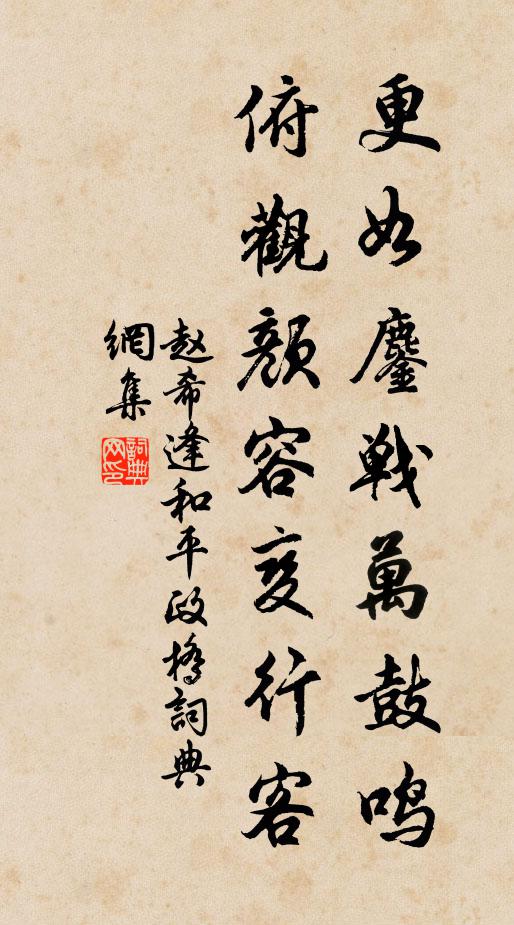 更如鏖戰萬鼓鳴
俯觀顔容变行客
赵希逢和平政橋詞典
網集
詞典
网印